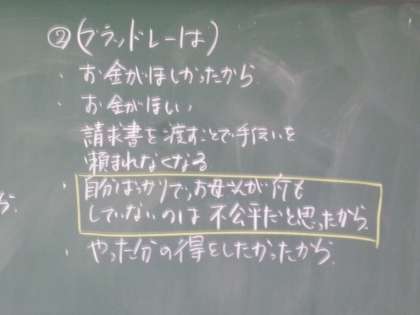 ②(ブラッドレーは)
・お金がほしかったから
・お金がほしい
請求書を渡すことで手伝いを
頼まれなくなる
・自分ばっかりで、お母さんが何も
していないのは不公平だと思ったから
・やった分の得をしたかったから